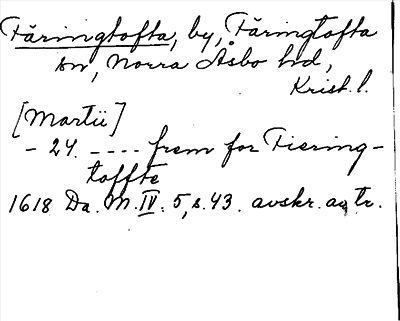 Färingtofta, by, Färingtofta
sn, Norra Åsbo hd,
Krist. l.
[Martii]
- 24. ---- frem for Fiering-
toffte
1618 Da. M. IV: 5, s. 43. avskr. av tr.